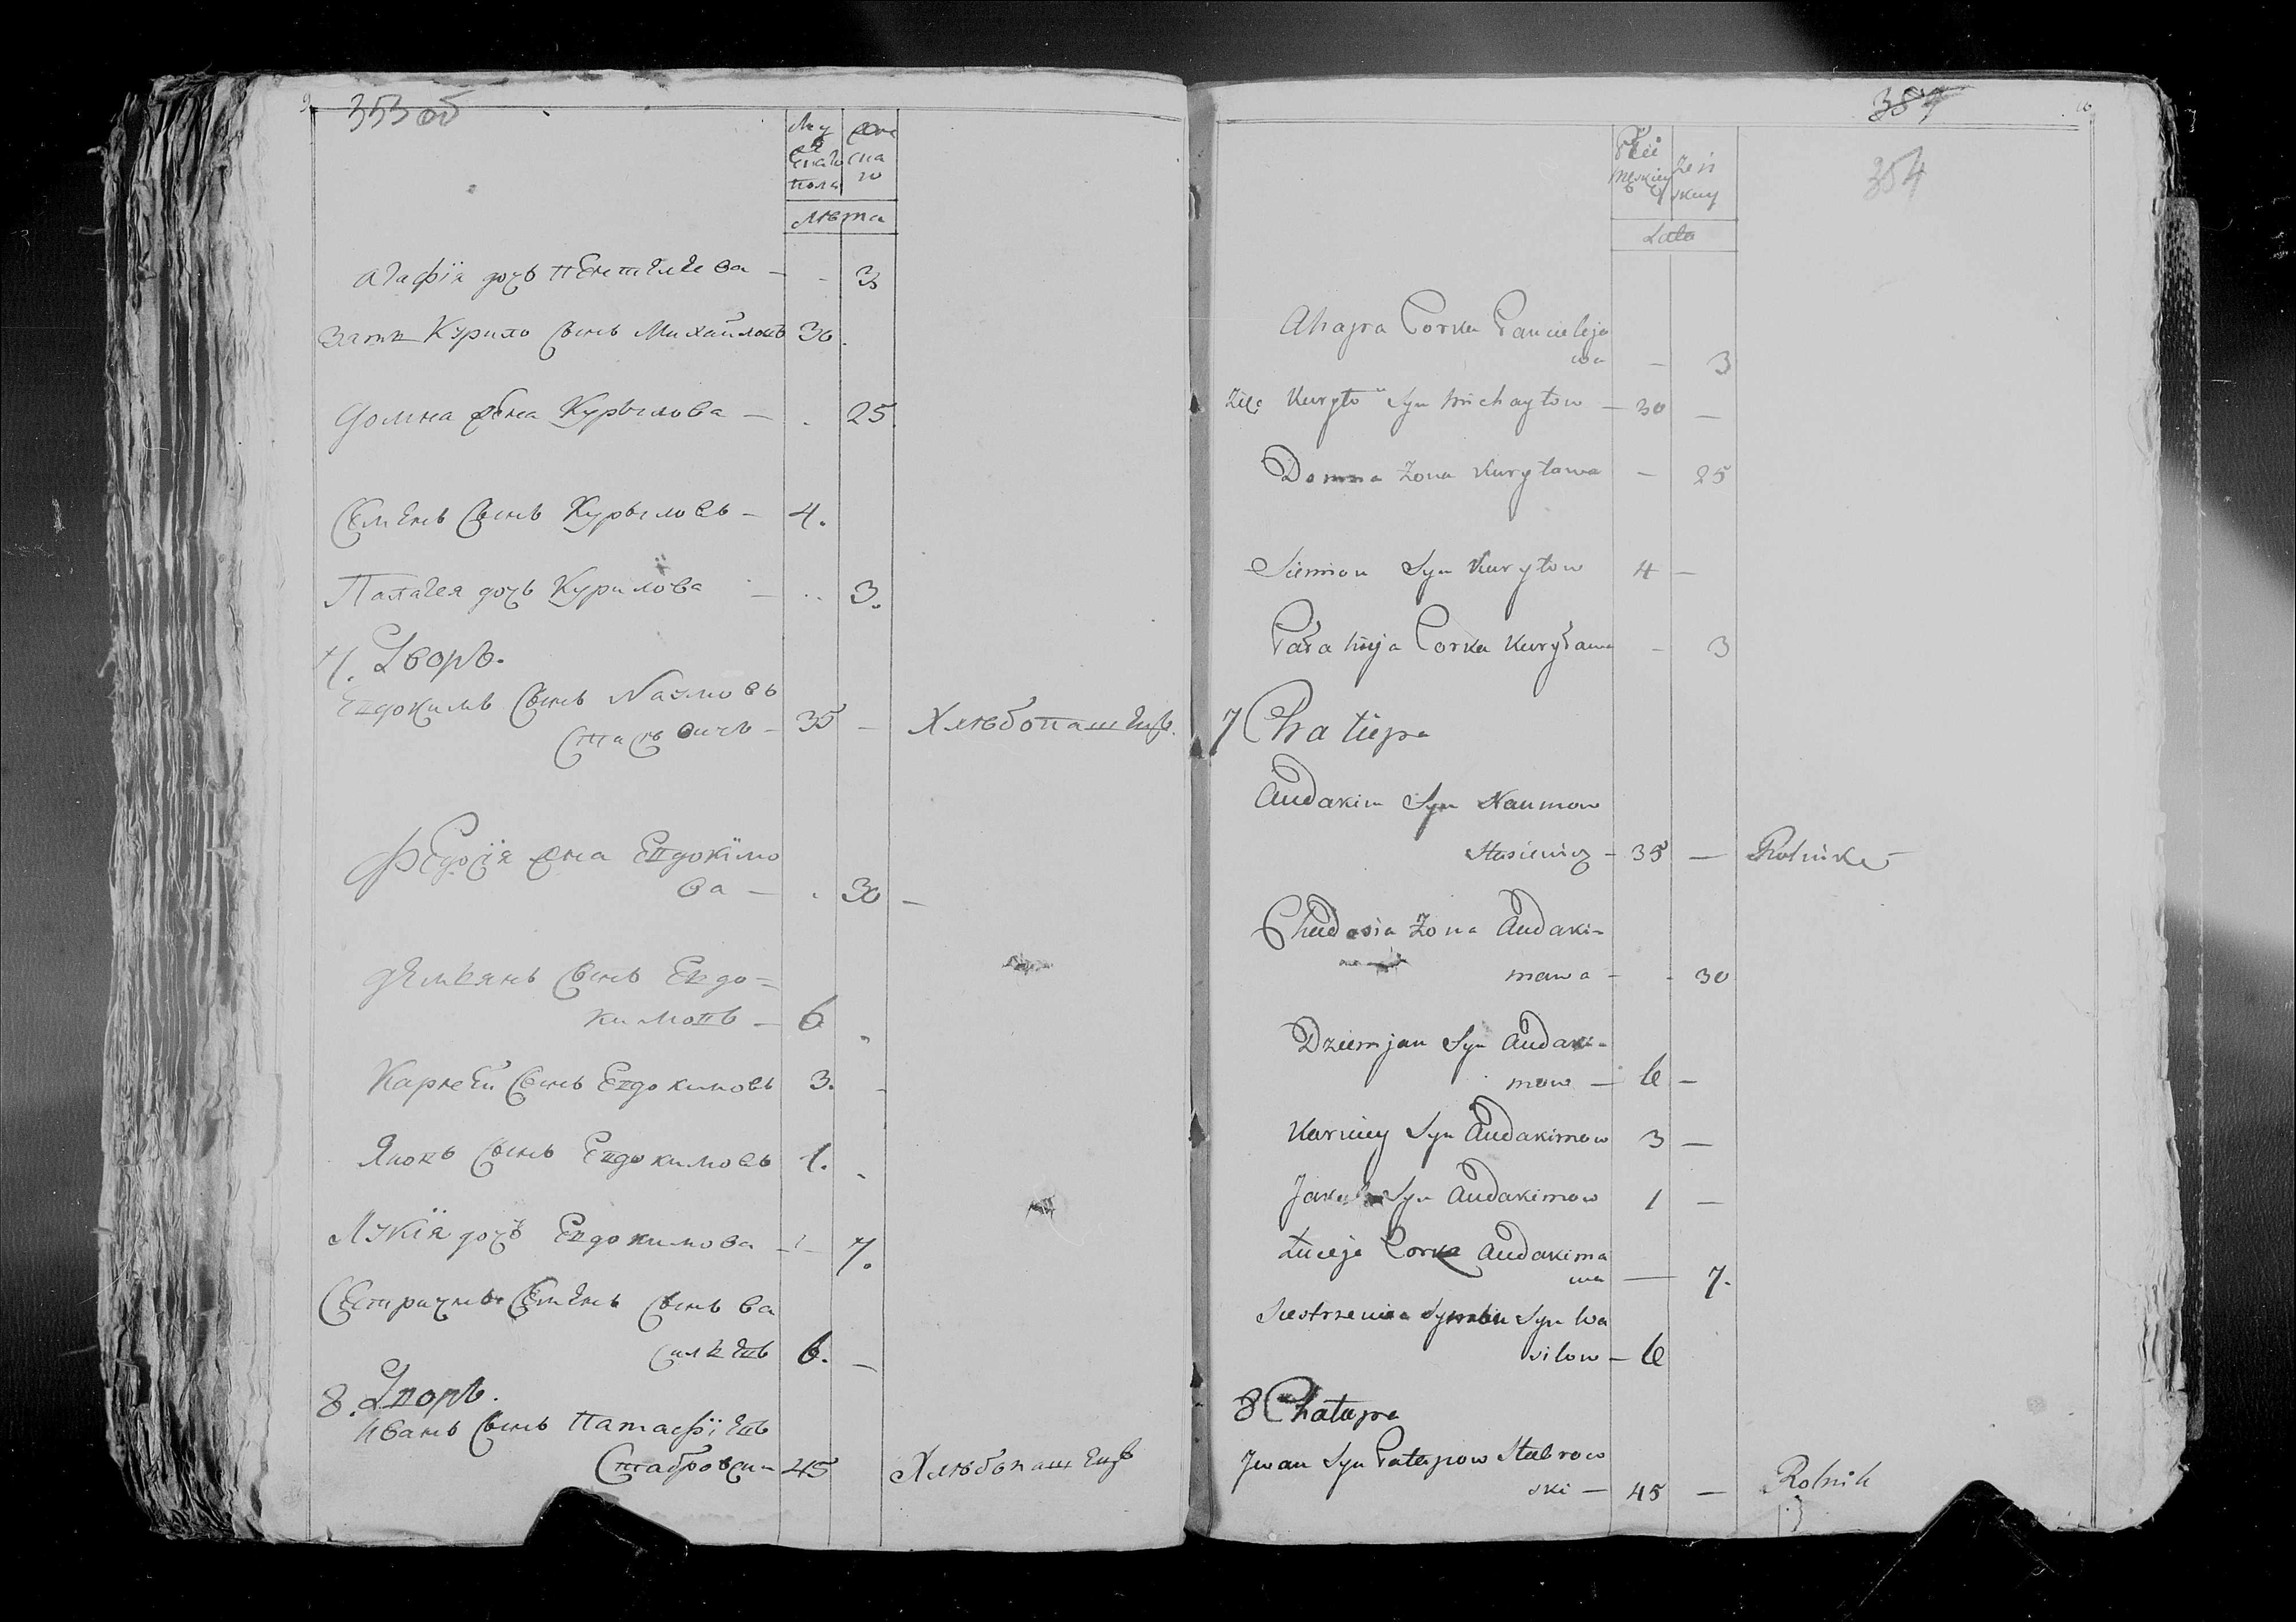 353 об
Му
жескаго
пола
Жен
ска
го
Лѣта
Агафія дочь Пентелева — - 3
Зять Курило Сынъ Михайловъ 30.
Домна жена Курылова — . 25
Семенъ Сынъ Курыловъ — 4.
Палагея дочь Курилова — .. 3.
7. Дворъ.
Евдокимъ Сынъ Наумовъ
Стасевичъ — 35 — Хлѣбопашецъ.
Федосія жена Евдокимо
ва — . 30 —
Демьянъ Сынъ Евдо=
кимовъ — 6
Карней Сынъ Евдокимовъ 3. -
Яковъ Сынъ Евдокимовъ 1. -
Лукія дочь Евдокимова — 7.
Сестричнъ Семенъ Сынъ Ва
сильевъ 6. —
8. Дворъ.
Иванъ Сынъ Патафіевъ
Стабровски — 45 Хлѣбопашецъ
354
Płci
męskiey
żeń
skiey
Lata
Ahapa Corka Pancieleja
wa — 3
Zięć Kuryło Syn Michayłow — 30 —
Domna Zona Kuryłowa — 25
Siemion Syn Kuryłow 4 —
Pałahija Corka Kuryława - 3
7 Chatupa
Audakim Syn Naumow
Stasiewicz — 35 — Rolnik
Chudosia Zona Audaki-
mawa - - 30
Dziemjan Syn Audaki-
mow — 6 —
Karniey Syn Audakimow 3 —
Jakub Syn Audakimow 1 —
Łuceja Corka Audakima
wa — 7.
Siestrzeniec Symon Syn Wa
silow — 6
8 Chatupa
Jwan Syn Patapow Stabrow
ski — 45 — Rolnik